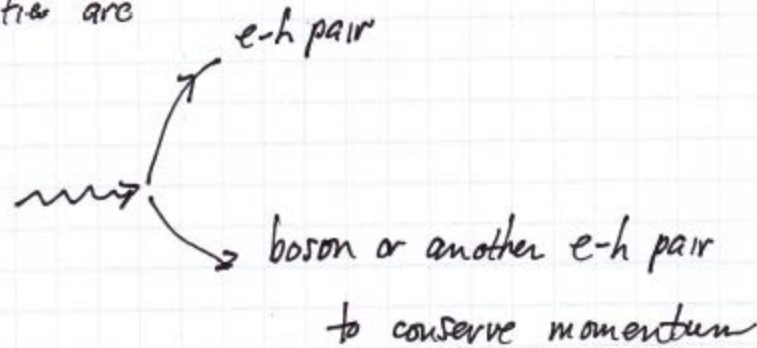 are
e-h pair
boson or another e-h pair
to conserve momentum